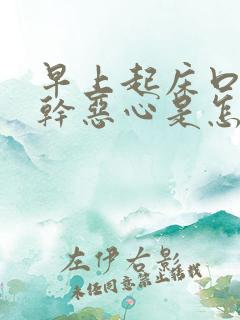 早上起床口
幹惡心是怎
左伊右影
未经同意禁止搭载